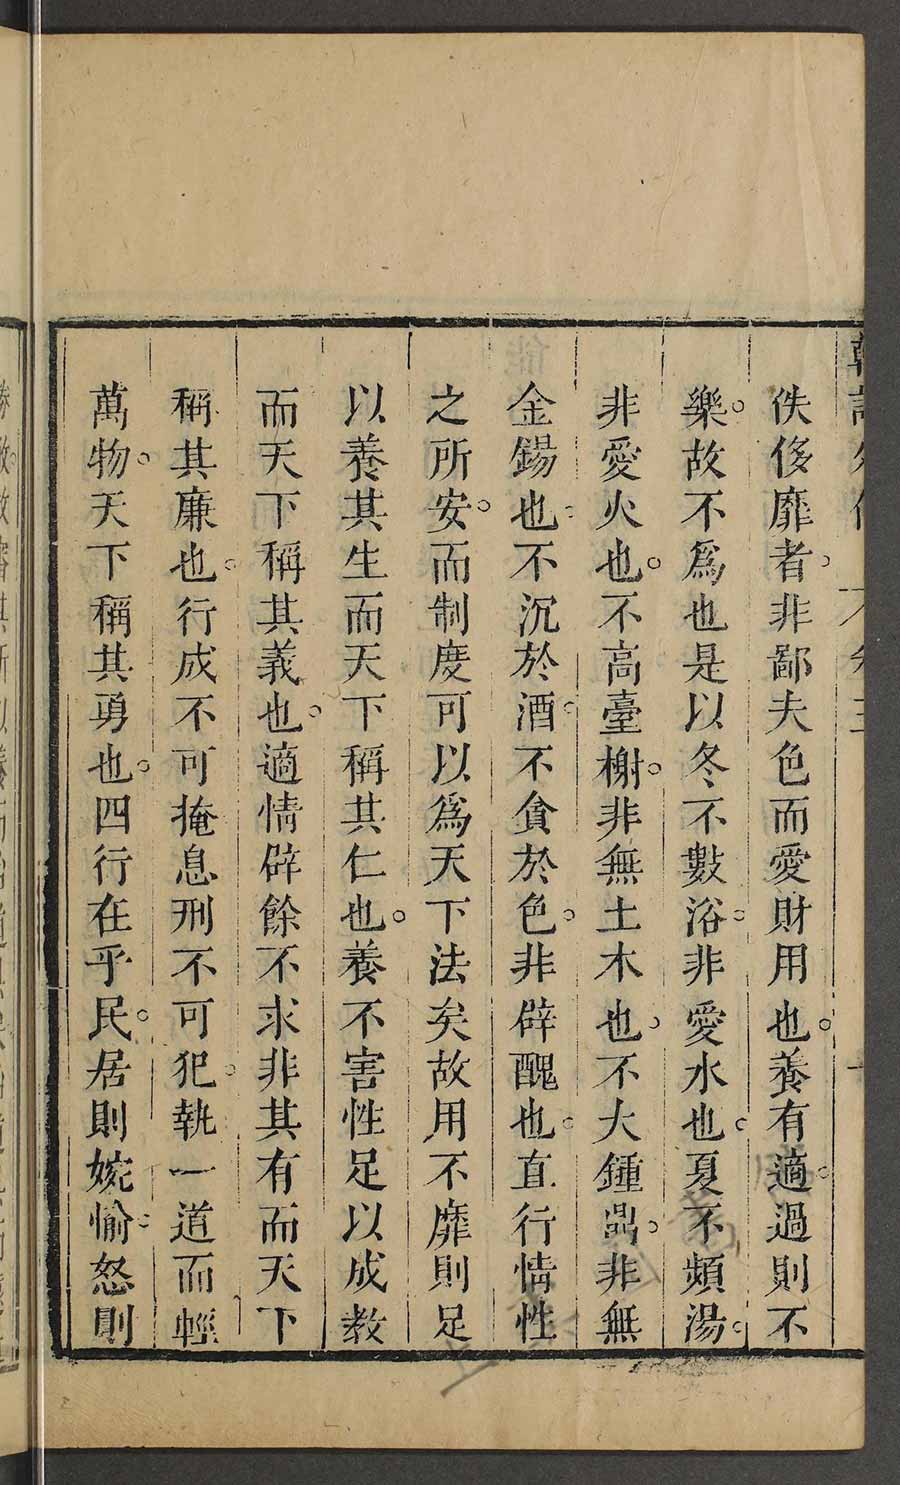 韓詩外傳 卷三
佚侈靡者。非鄙夫色而愛財用也。養有適。過則不
樂。故不爲也是以冬不數浴。非愛水也。夏不頻湯。
非愛火也。不高臺榭。非無土木也。不大鍾鼎。非無
金錫也。不沉於酒。不貪於色。非辟醜也。直行情性
之所安。而制度可以爲天下法矣故用不靡則足
以養其生而天下稱其仁也。養不害性足以成教
而天下稱其義也。適情辟餘不求非其有而天下
稱其廉也。行成不可掩息刑不可犯。執一道而輕
萬物。天下稱其勇也。四行在乎民。居則婉愉。怒則